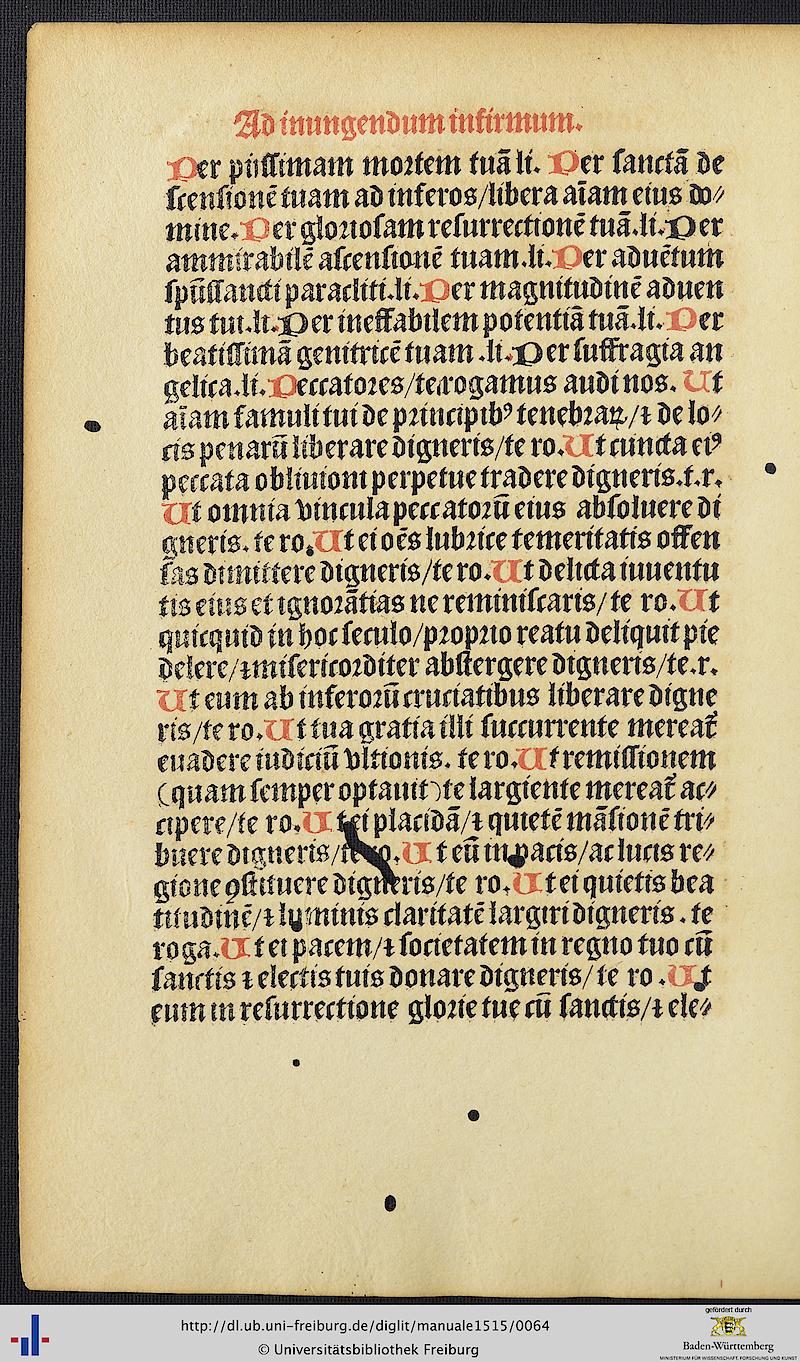 Ad inungendum infirmum.
Per piissimam mortem tuā li. Per sanctā de
scensionē tuam ad inferos/libera aīam eius do⸗
mine. Per gloriosam resurrectionē tuā.li. Per
ammirabilē ascensionē tuam.li. Per aduētum
spūssancti paracliti.li. Per magnitudinē aduen
tus tui.li. Per ineffabilem potentiā tuā.li. Per
beatissimā genitricē tuam .li. Per suffragia an
gelica.li. Peccatores/te rogamus audi nos. Ut
aīam famuli tui de principibꝰ tenebraꝝ/⁊ de lo⸗
cis penarū liberare digneris/te ro. Ut cuncta eiꝰ
peccata obliuioni perpetue tradere digneris.t.r.
Ut omnia vincula peccatorū eius absoluere di
gneris. te ro. Ut ei oēs lubrice temeritatis offen
sas dimittere digneris/te ro. Ut delicta iuuentu
tis eius et ignorātias ne reminiscaris/te ro. Ut
quicquid in hoc seculo/proprio reatu deliquit pie
delere/⁊ misericorditer abstergere digneris/te.r.
Ut eum ab inferorū cruciatibus liberare digne
ris/te ro. Ut tua gratia illi succurrente mereat̄
euadere iudiciū vltionis. te ro. Ut remissionem
(quam semper optauit) te largiente mereat̄ ac⸗
cipere/te ro. Ut ei placidā/⁊ quietē māsionē tri⸗
buere digneris/te ro. Ut eū in pacis/ac lucis re⸗
gione ꝯstituere digneris/te ro. Ut ei quietis bea
titudinē/⁊ luminis claritatē largiri digneris. te
roga. Ut ei pacem/⁊ societatem in regno tuo cū
sanctis ⁊ electis tuis donare digneris/te ro. Ut
eum in resurrectione glorie tue cū sanctis/⁊ ele⸗
http://dl.ub.uni-freiburg.de/diglit/manuale1515/0064
© Universitätsbibliothek Freiburg
gefördert durch
Baden-Württemberg
MINISTERIUM FÜR WISSENSCHAFT, FORSCHUNG UND KUNST